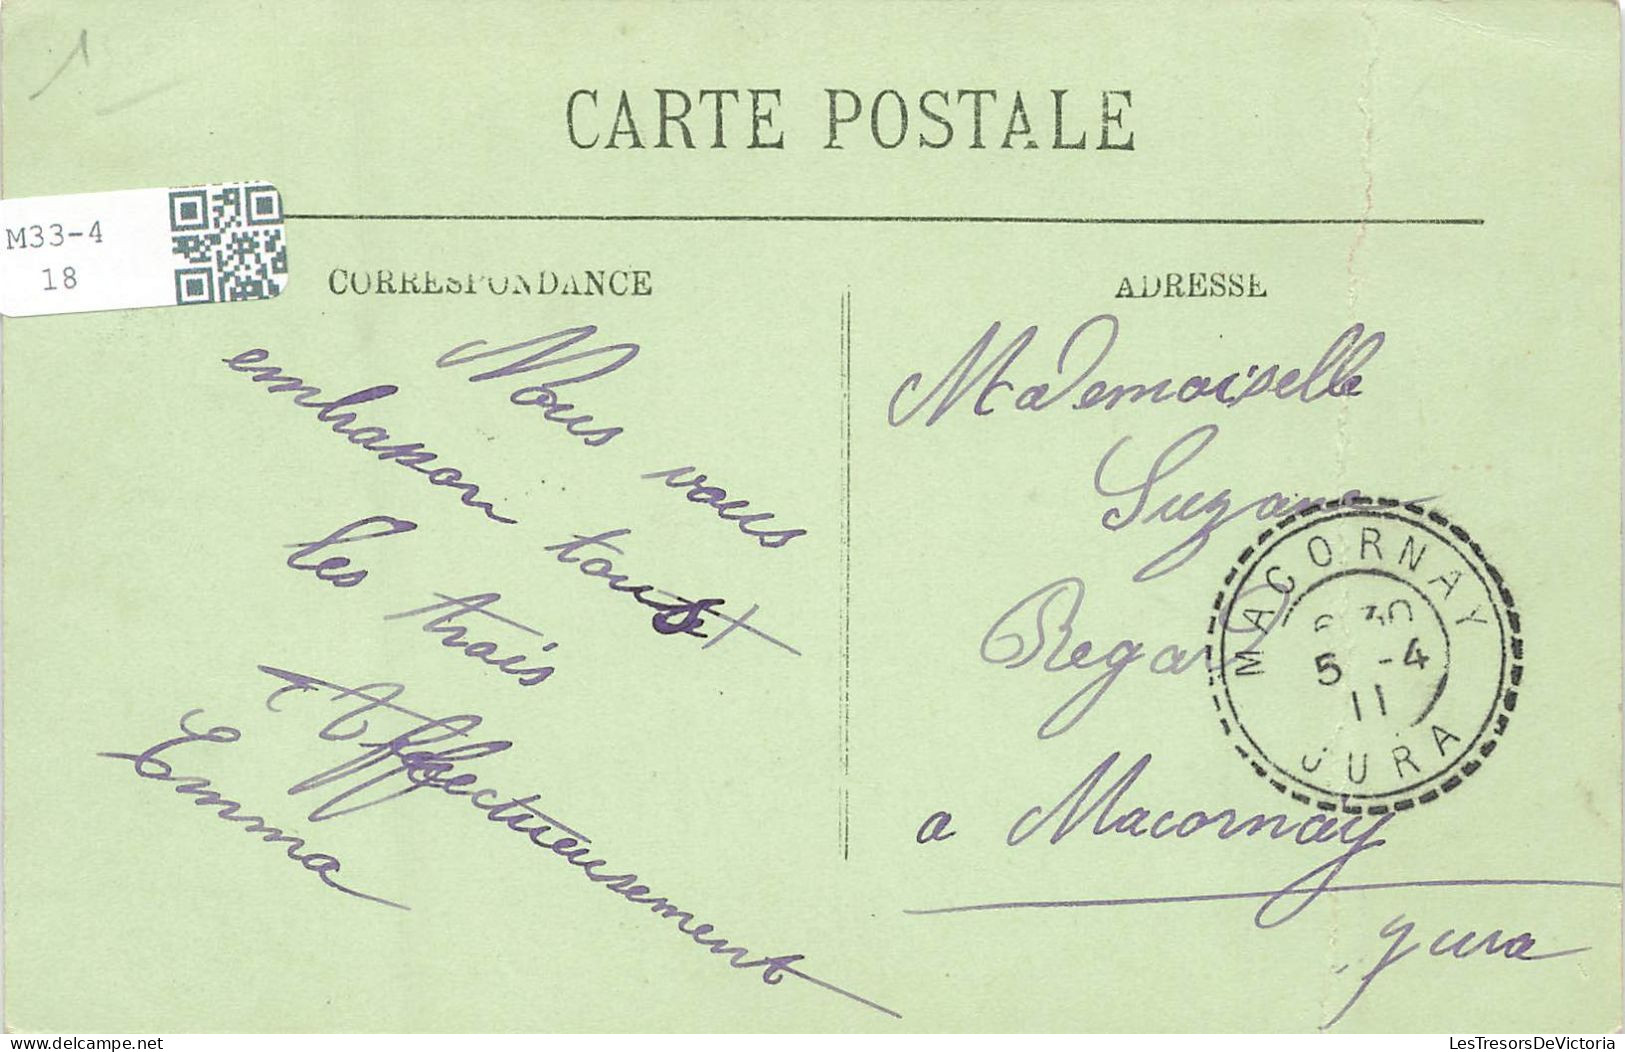 1
CARTE POSTALE
M33-4
18
CORRESPONDANCE
Nous vous
embrasson tous
les trois
Affectueusement
Emma
ADRESSE
Mademoiselle
Suzane
Regard
a Macornay
Jura
MACORNAY
30
5 -4
11
JURA
delcampe.net
LesTresorsDeVictoria